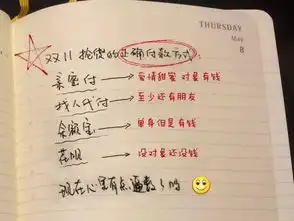 THURSDAY
May
8
双11 抢货的正确付款方式:
亲密付 → 爱情甜蜜 对象有钱
找人代付 → 至少还有朋友
余额宝 → 单身但是有钱
花呗 → 没对象还没钱
现在心里有点逼数了吗